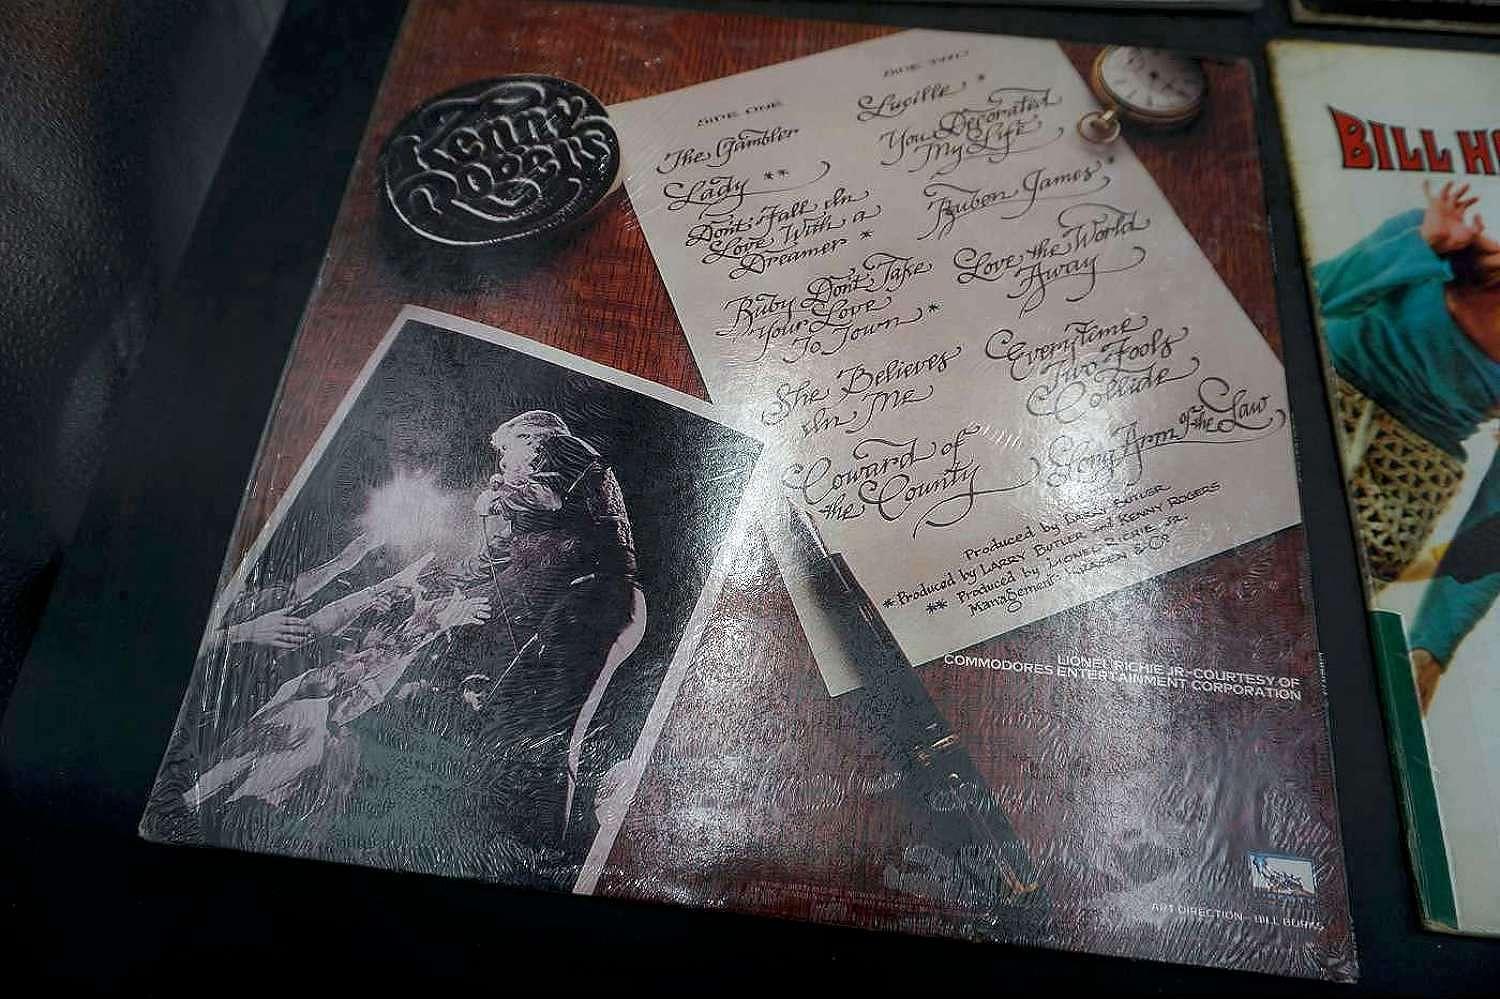 Kenny
Rogers
SIDE ONE
The Gambler
Lady **
Don't Fall In
Love With a
Dreamer *
Ruby Don't Take
Your Love
To Town *
She Believes
In Me
Coward of
the County
SIDE TWO
Lucille *
You Decorated
My Life
Ruben James *
Love the World
Away
Everytime
Two Fools
Collide
Long Arm of the Law
Produced by LARRY BUTLER
* Produced by LARRY BUTLER and KENNY ROGERS
** Produced by LIONEL RICHIE, JR.
Management: & Co
LIONEL RICHIE JR-COURTESY OF
COMMODORES ENTERTAINMENT CORPORATION
ART DIRECTION - BILL BURKS
BILL H